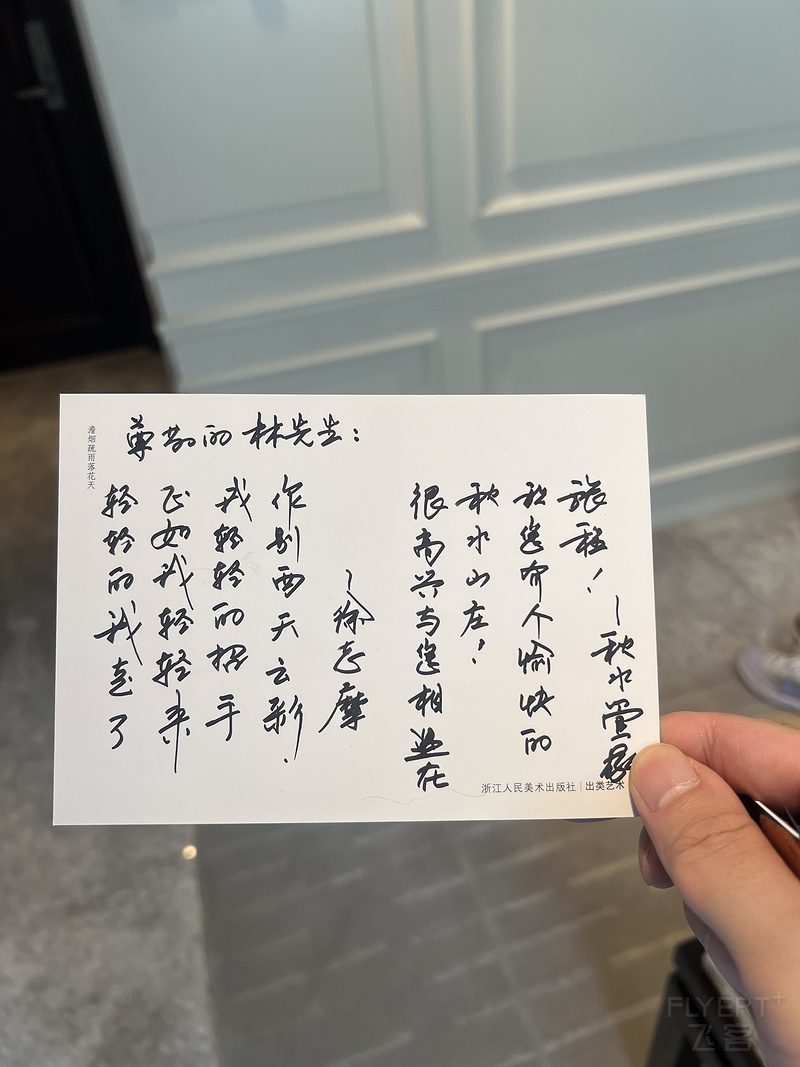 澹烟疏雨落花天
尊敬的林先生：
轻轻的我走了
正如我轻轻来
我轻轻的招手
作别西天云彩.
~徐志摩
很高兴与您相遇在
秋水山庄！
祝您有个愉快的
旅程！
~秋水
浙江人民美术出版社 | 出类艺术
FLYERT+
飞客